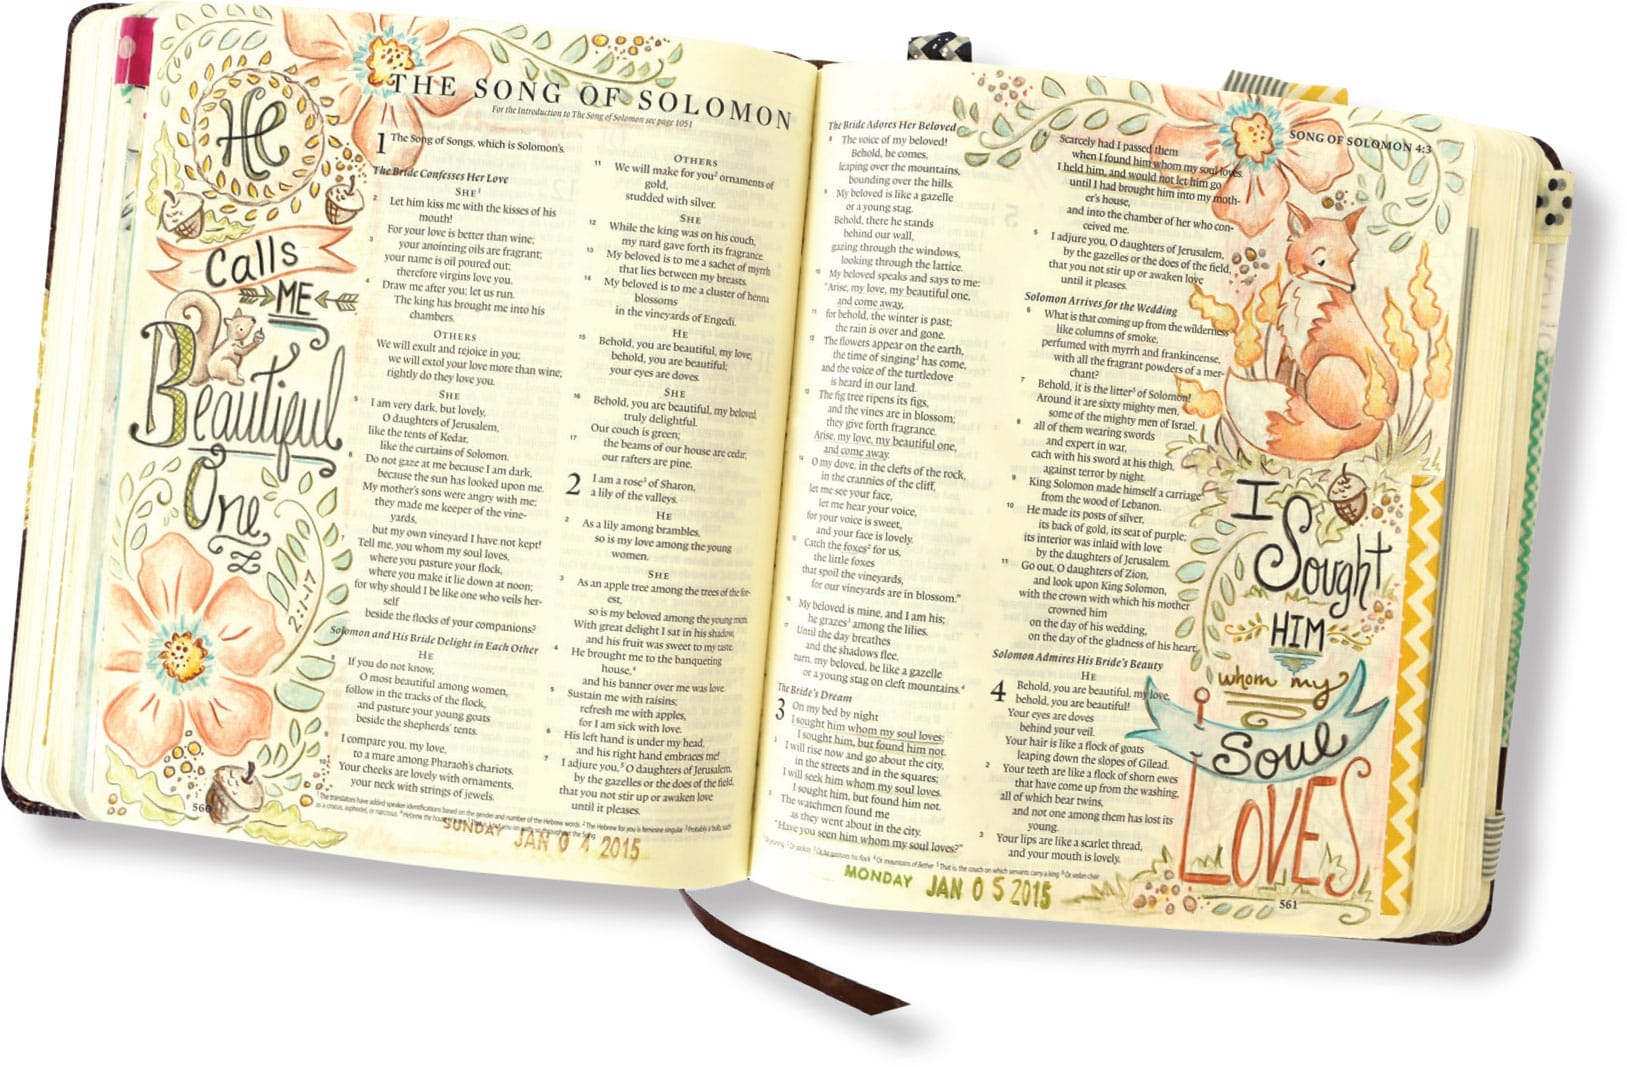 He
Calls
ME
Beautiful
One
2:1-17
THE SONG OF SOLOMON
For the Introduction to The Song of Solomon see page 1051
1 The Song of Songs, which is Solomon's.
The Bride Confesses Her Love
SHE1
2 Let him kiss me with the kisses of his
mouth!
For your love is better than wine;
3 your anointing oils are fragrant;
your name is oil poured out;
therefore virgins love you.
4 Draw me after you; let us run.
The king has brought me into his
chambers.
OTHERS
We will exult and rejoice in you;
we will extol your love more than wine;
rightly do they love you.
SHE
5 I am very dark, but lovely,
O daughters of Jerusalem,
like the tents of Kedar,
like the curtains of Solomon.
6 Do not gaze at me because I am dark,
because the sun has looked upon me.
My mother's sons were angry with me;
they made me keeper of the vine-
yards,
but my own vineyard I have not kept!
Tell me, you whom my soul loves,
where you pasture your flock,
where you make it lie down at noon;
for why should I be like one who veils her-
self
beside the flocks of your companions?
Solomon and His Bride Delight in Each Other
HE
If you do not know,
O most beautiful among women,
follow in the tracks of the flock,
and pasture your young goats
beside the shepherds' tents.
I compare you, my love,
to a mare among Pharaoh's chariots.
10 Your cheeks are lovely with ornaments,
your neck with strings of jewels.
OTHERS
11 We will make for you2 ornaments of
gold,
studded with silver.
SHE
12 While the king was on his couch,
my nard gave forth its fragrance.
13 My beloved is to me a sachet of myrrh
that lies between my breasts.
14 My beloved is to me a cluster of henna
blossoms
in the vineyards of Engedi.
HE
15 Behold, you are beautiful, my love;
behold, you are beautiful;
your eyes are doves.
SHE
16 Behold, you are beautiful, my beloved,
truly delightful.
Our couch is green;
17 the beams of our house are cedar;
our rafters are pine.
2 I am a rose3 of Sharon,
a lily of the valleys.
HE
2 As a lily among brambles,
so is my love among the young
women.
SHE
3 As an apple tree among the trees of the for-
est,
so is my beloved among the young men.
With great delight I sat in his shadow,
and his fruit was sweet to my taste.
4 He brought me to the banqueting
house,4
and his banner over me was love.
5 Sustain me with raisins;
refresh me with apples,
for I am sick with love.
6 His left hand is under my head,
and his right hand embraces me!
7 I adjure you,5 O daughters of Jerusalem,
by the gazelles or the does of the field,
that you not stir up or awaken love
until it pleases.
1 The translators have added speaker identifications based on the gender and number of the Hebrew words 2 The Hebrew for you is feminine singular 3 Probably a bulb, such
as a crocus, asphodel, or narcissus 4 Hebrew the house of wine
560
SUNDAY JAN 0 4 2015
SONG OF SOLOMON 4:3
The Bride Adores Her Beloved
8 The voice of my beloved!
Behold, he comes,
leaping over the mountains,
bounding over the hills.
9 My beloved is like a gazelle
or a young stag.
Behold, there he stands
behind our wall,
gazing through the windows,
looking through the lattice.
10 My beloved speaks and says to me:
"Arise, my love, my beautiful one,
and come away,
11 for behold, the winter is past;
the rain is over and gone.
12 The flowers appear on the earth,
the time of singing1 has come,
and the voice of the turtledove
is heard in our land.
13 The fig tree ripens its figs,
and the vines are in blossom;
they give forth fragrance.
Arise, my love, my beautiful one,
and come away.
14 O my dove, in the clefts of the rock,
in the crannies of the cliff,
let me see your face,
let me hear your voice,
for your voice is sweet,
and your face is lovely.
15 Catch the foxes2 for us,
the little foxes
that spoil the vineyards,
for our vineyards are in blossom."
16 My beloved is mine, and I am his;
he grazes3 among the lilies.
17 Until the day breathes
and the shadows flee,
turn, my beloved, be like a gazelle
or a young stag on cleft mountains.4
The Bride's Dream
3 On my bed by night
I sought him whom my soul loves;
I sought him, but found him not.
2 I will rise now and go about the city,
in the streets and in the squares;
I will seek him whom my soul loves.
I sought him, but found him not.
3 The watchmen found me
as they went about in the city.
"Have you seen him whom my soul loves?"
4 Scarcely had I passed them
when I found him whom my soul loves.
I held him, and would not let him go
until I had brought him into my moth-
er's house,
and into the chamber of her who con-
ceived me.
5 I adjure you, O daughters of Jerusalem,
by the gazelles or the does of the field,
that you not stir up or awaken love
until it pleases.
Solomon Arrives for the Wedding
6 What is that coming up from the wilderness
like columns of smoke,
perfumed with myrrh and frankincense,
with all the fragrant powders of a mer-
chant?
7 Behold, it is the litter5 of Solomon!
Around it are sixty mighty men,
some of the mighty men of Israel,
8 all of them wearing swords
and expert in war,
each with his sword at his thigh,
against terror by night.
9 King Solomon made himself a carriage6
from the wood of Lebanon.
10 He made its posts of silver,
its back of gold, its seat of purple;
its interior was inlaid with love
by the daughters of Jerusalem.
11 Go out, O daughters of Zion,
and look upon King Solomon,
with the crown with which his mother
crowned him
on the day of his wedding,
on the day of the gladness of his heart.
Solomon Admires His Bride's Beauty
HE
4 Behold, you are beautiful, my love,
behold, you are beautiful!
Your eyes are doves
behind your veil.
Your hair is like a flock of goats
leaping down the slopes of Gilead.
2 Your teeth are like a flock of shorn ewes
that have come up from the washing,
all of which bear twins,
and not one among them has lost its
young.
3 Your lips are like a scarlet thread,
and your mouth is lovely.
1 Or pruning 2 Or jackals 3 Or he pastures his flock 4 Or mountains of Bether 5 That is, the couch on which servants carry a king 6 Or sedan chair
561
MONDAY JAN 0 5 2015
I
Sought
HIM
whom my
Soul
LOVES